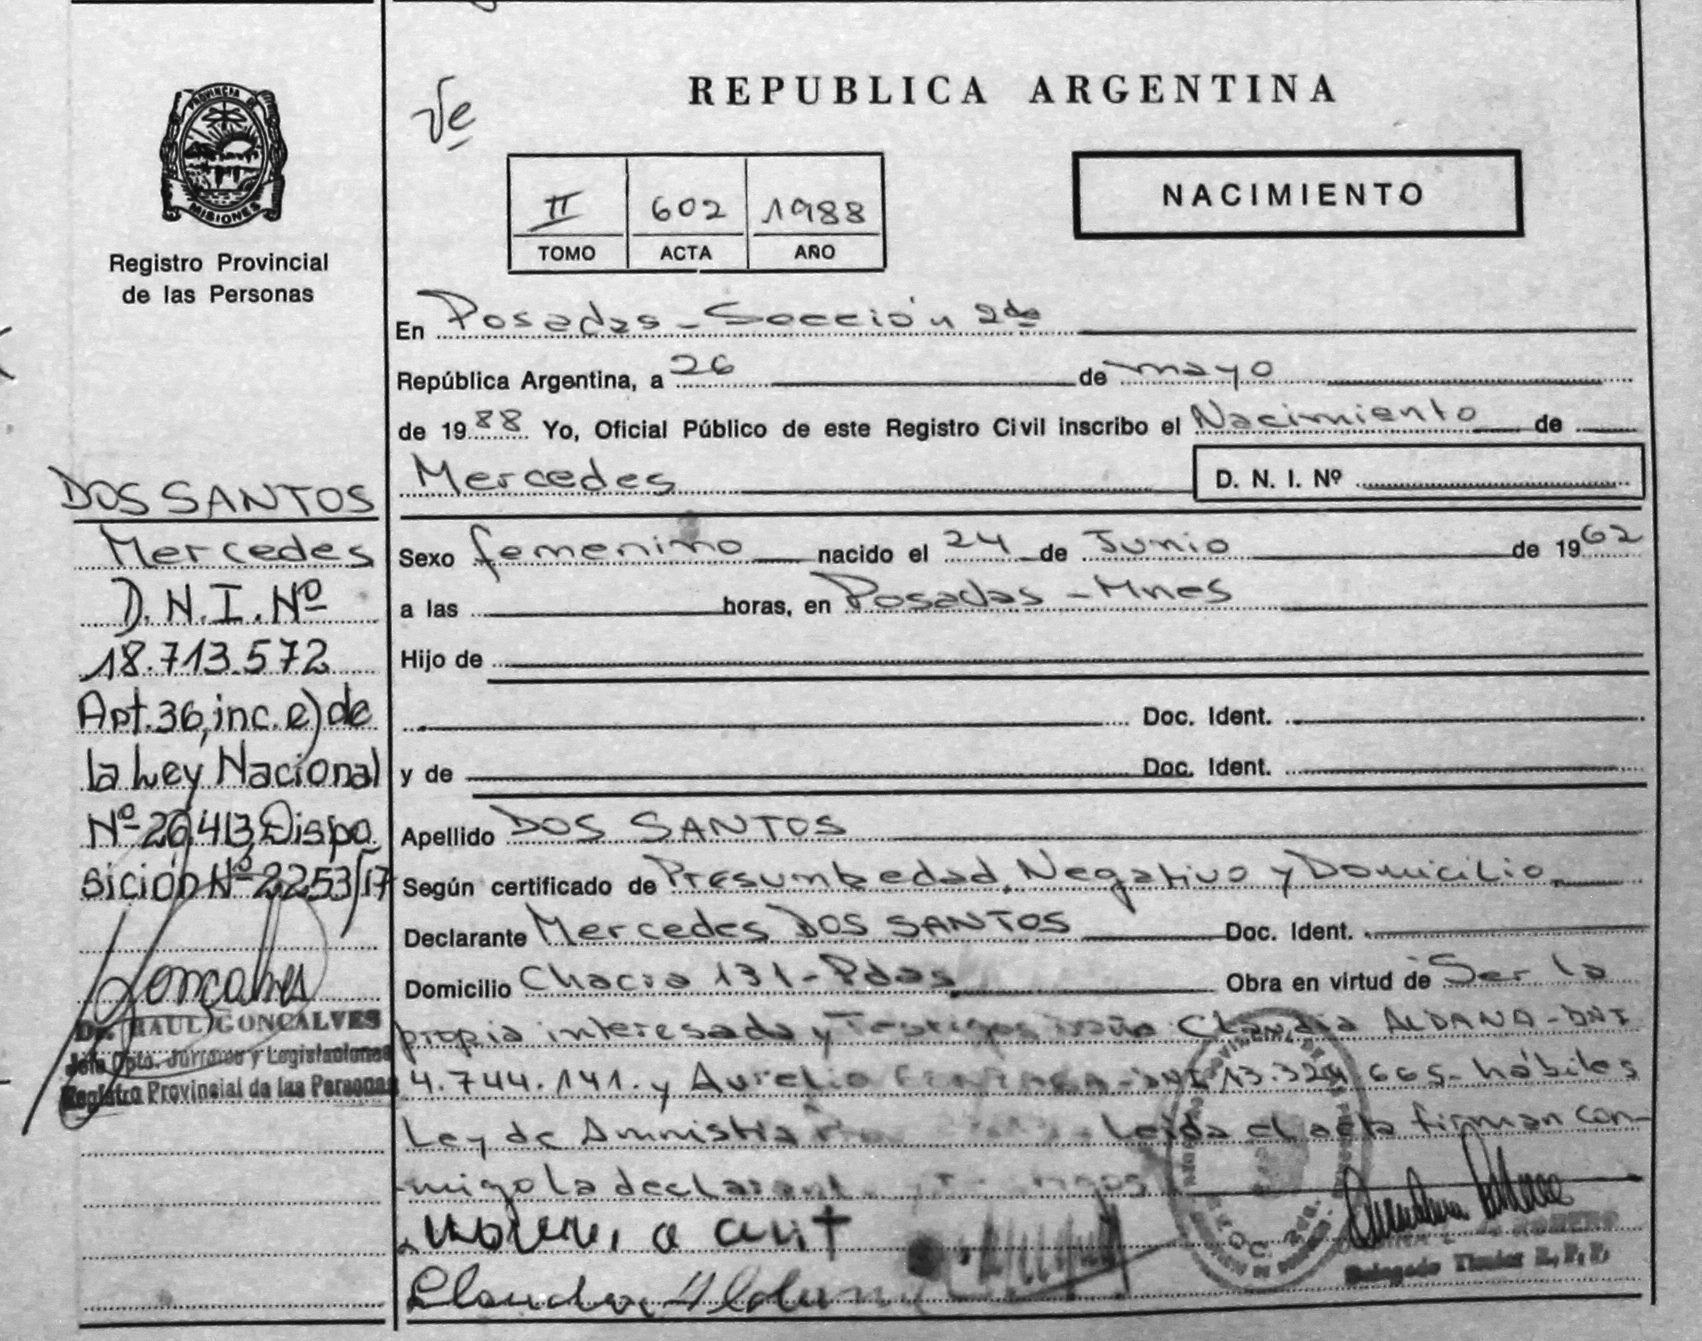 PROVINCIA DE
MISIONES
Registro Provincial
de las Personas
DOS SANTOS
Mercedes
D.N.I.Nº
18.713.572
Art.36,inc.e)de
la Ley Nacional
Nº 26.413, Dispo
sición Nº 2253/17
Dr. RAUL GONCALVES
Jefe Dpto. Jurídico y Legislaciones
Registro Provincial de las Personas
REPUBLICA ARGENTINA
II 602 1988
TOMO ACTA AÑO
NACIMIENTO
En Posadas - Sección 2da
República Argentina, a 26 de mayo
de 1988 Yo, Oficial Público de este Registro Civil inscribo el Nacimiento de
Mercedes D. N. I. Nº
Sexo femenino nacido el 24 de Junio de 1962
a las horas, en Posadas - Mnes
Hijo de
Doc. Ident.
y de Doc. Ident.
Apellido DOS SANTOS
Según certificado de Presumbedad, Negativo y Domicilio
Declarante Mercedes DOS SANTOS Doc. Ident.
Domicilio Chacra 131 - Pdas Obra en virtud de Ser la
propia interesada y Testigos Claudia ALDANA - DNI
4.744.141. y Aurelio DNI 13.324.665 - hábiles
Ley de Amnistia Leida el acta firman con-
migo la declarante
Delegado Titular R.P.P.